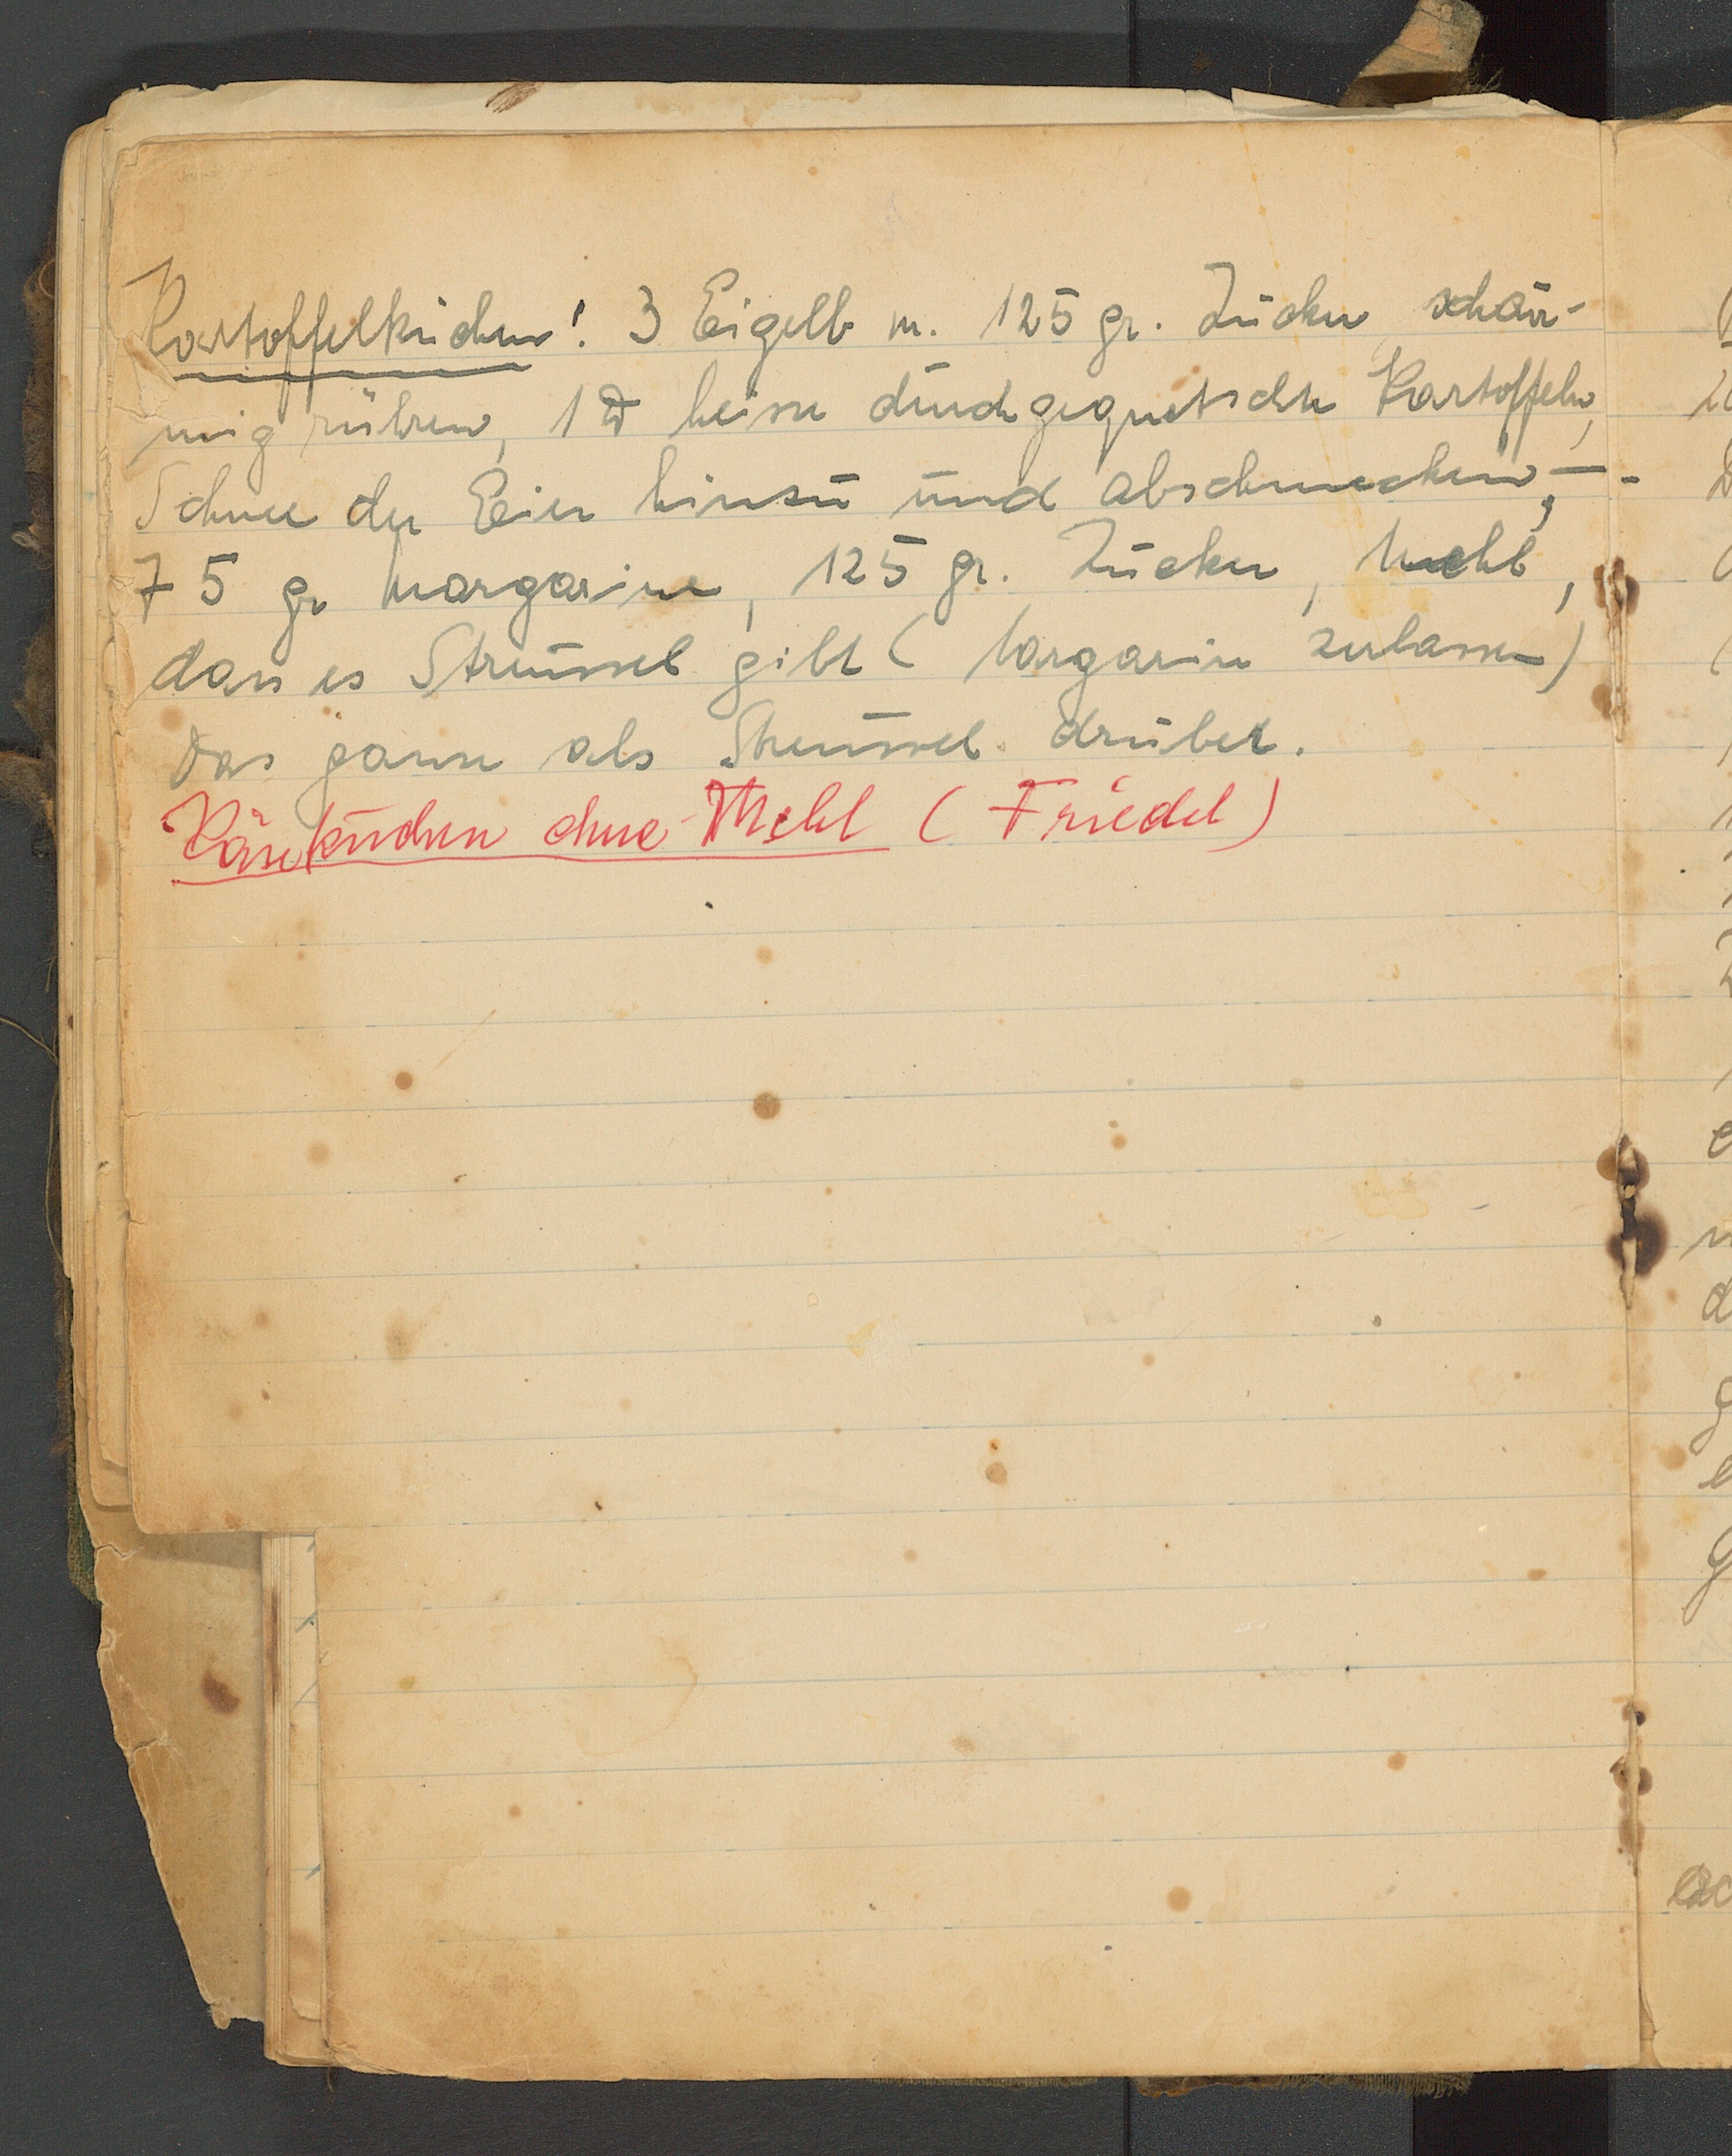 Kartoffelkuchen! 3 Eigelb m. 125 gr. Zucker schau-
mig rühren, 1 ℔ heisse durchgequetschte Kartoffeln,
Schnee der Eier hinzu und abschmecken, —-
75 gr Margarine, 125 gr. Zucker, Mehl,
dass es Streussel gibt (Margarine zerlassen)
Das ganze als Streussel drüber.
Käsekuchen ohne Mehl (Friedel)